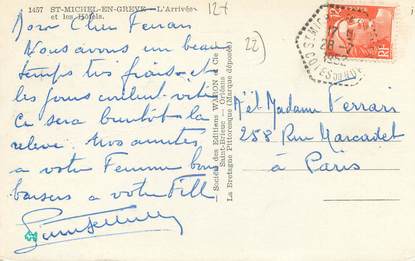 1457 ST-MICHEL-EN-GRÈVE - L'Arrivée
et les Hôtels.
127
22
Mon Cher Ferrari
Nous avons un beau
temps très frais et
les jours
Ce sera bientôt la
relève. Nos amitiés
à votre Femme bons
baisers à votre Fille
Société des Editions WARON et Cie
Saint-Brieuc
La Bretagne Pittoresque (Marque déposée)
RF
1952
M et Madame Ferrari
258 Rue Marcadet
à Paris